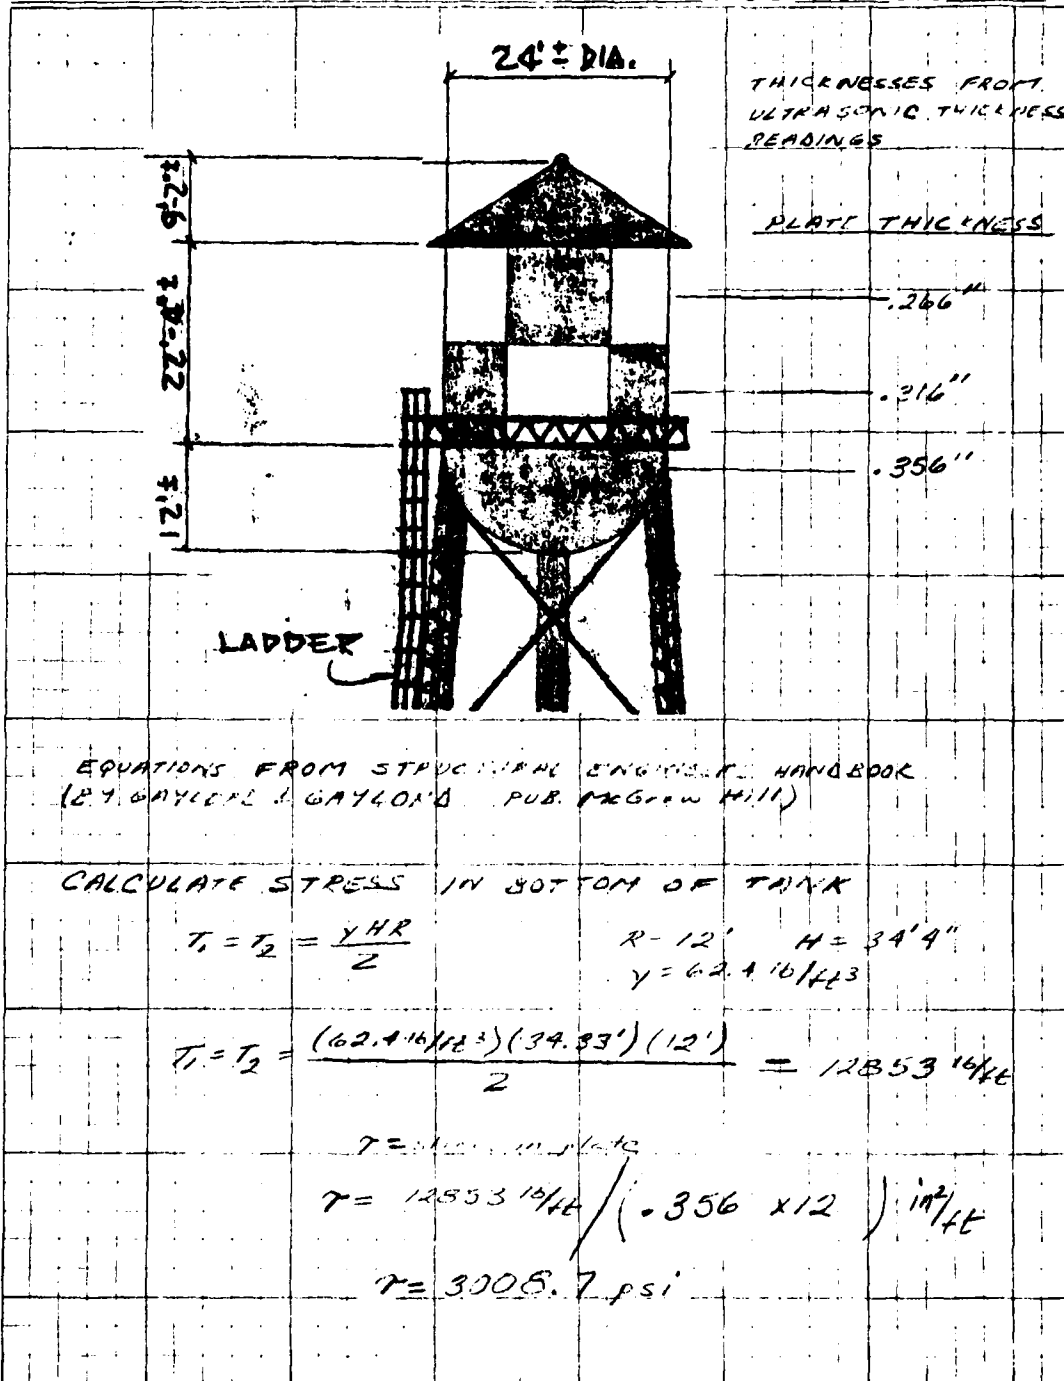 24'± DIA.
THICKNESSES FROM
ULTRASONIC THICKNESS
READINGS
PLATE THICKNESS
.266"
.316"
.356"
LADDER
EQUATIONS FROM STRUCTURAL ENGINEERS HANDBOOK
(BY GAYLORD & GAYLORD PUB. McGraw Hill)
CALCULATE STRESS IN BOTTOM OF TANK
T₁ = T₂ = γHR / 2
R = 12' H = 34'4"
γ = 62.4 lb/ft³
T₁ = T₂ = (62.4 lb/ft³)(34.33')(12') / 2 = 12853 lb/ft
τ = stress in plate
τ = 12853 lb/ft / (.356 x12 ) in²/ft
τ = 3008.7 psi